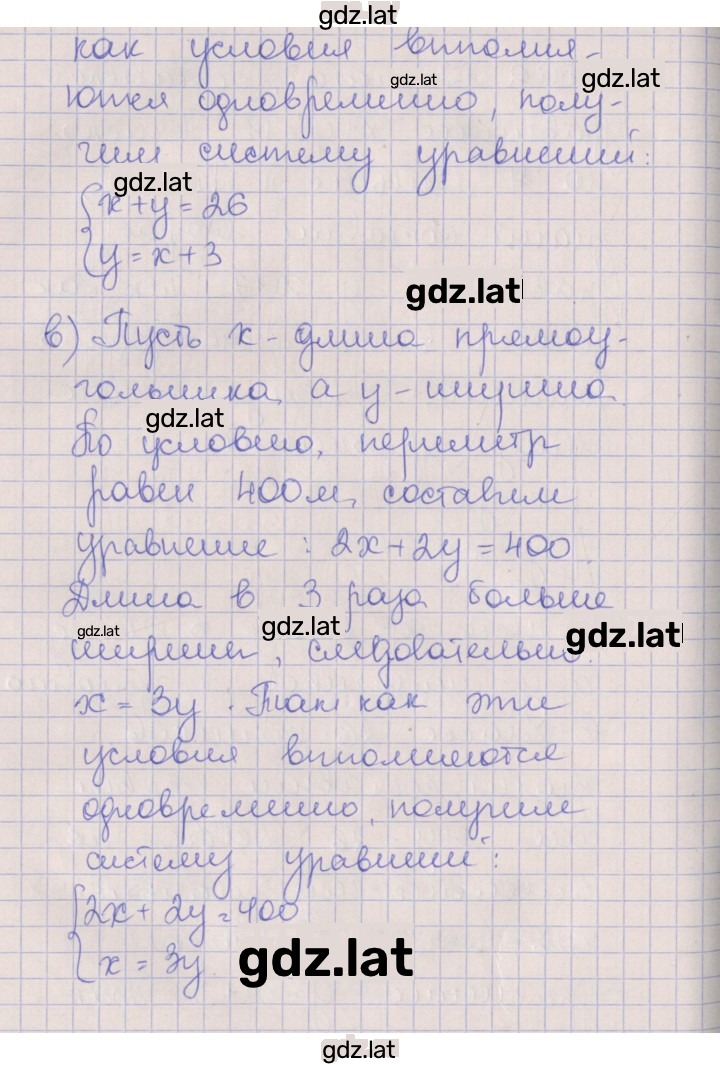 gdz.lat
как условия выполня-
gdz.lat
gdz.lat
ются одновременно, полу-
чим систему уравнений:
gdz.lat
x + y = 26
y = x + 3
gdz.lat
в) Пусть x - длина прямоу-
гольника, а y - ширина.
gdz.lat
По условию, периметр
равен 400м, составим
уравнение : 2x + 2y = 400.
Длина в 3 раза больше
gdz.lat
gdz.lat
gdz.lat
ширины, следовательно
x = 3y . Так как эти
условия выполняются
одновременно, получим
систему уравнений:
2x + 2y = 400
x = 3y
gdz.lat
gdz.lat